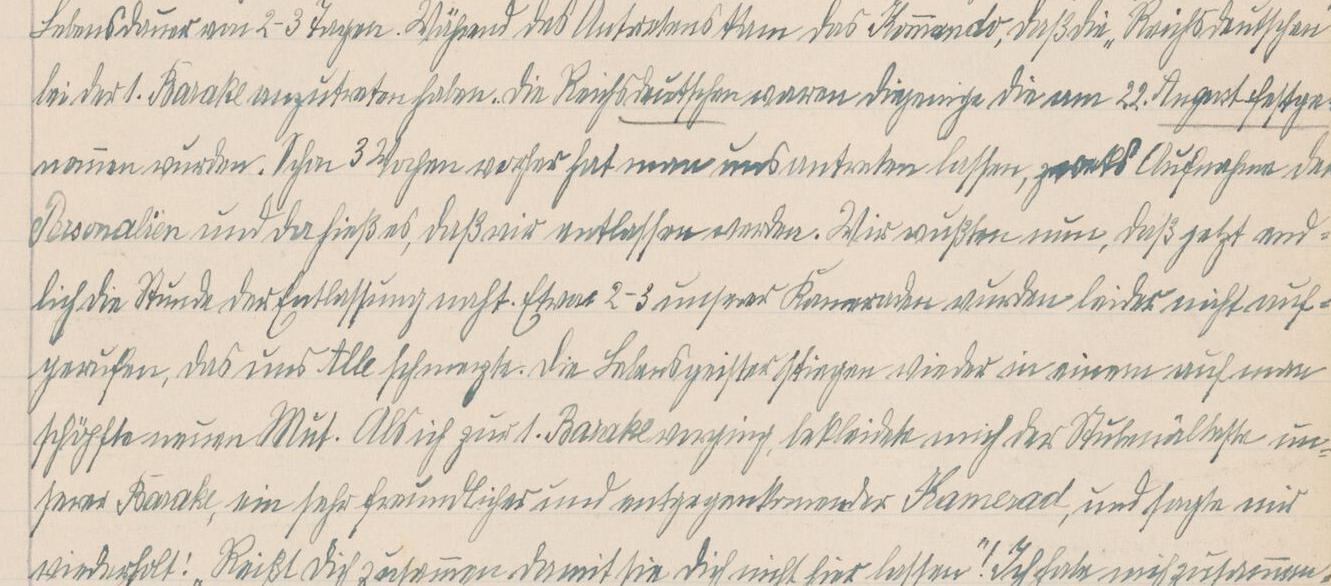 Lebensdauer von 2-3 Tagen. Während des Antretens kam das Kom̅ando, daß die „Reichsdeutschen"
bei der 1. Barake anzutreten haben. Die Reichsdeutschen waren diejenige die am 22. August festge-
nom̅en wurden. Schon 3 Wochen vorher hat man uns antreten lassen, zwecks Aufnahme der
Personalien und da hieß es, daß wir entlassen werden. Wir wußten nun, daß jetzt end-
lich die Stunde der Entlassung naht. Etwa 2-3 unserer Kameraden wurden leider nicht auf-
gerufen, das uns Alle schmerzte. Die Lebensgeister stiegen wieder in einem auf man
schöpfte neuen Mut. Als ich zur 1. Barake vorging, bekleidete mich der Stubenälteste un-
serer Barake, ein sehr freundlicher und entgegenkom̅ender Kamerad, und sagte mir
wiederholt: „Reißt Dich zusam̅en damit sie Dich nicht hier lassen"! Ich habe mich zusam̅en-